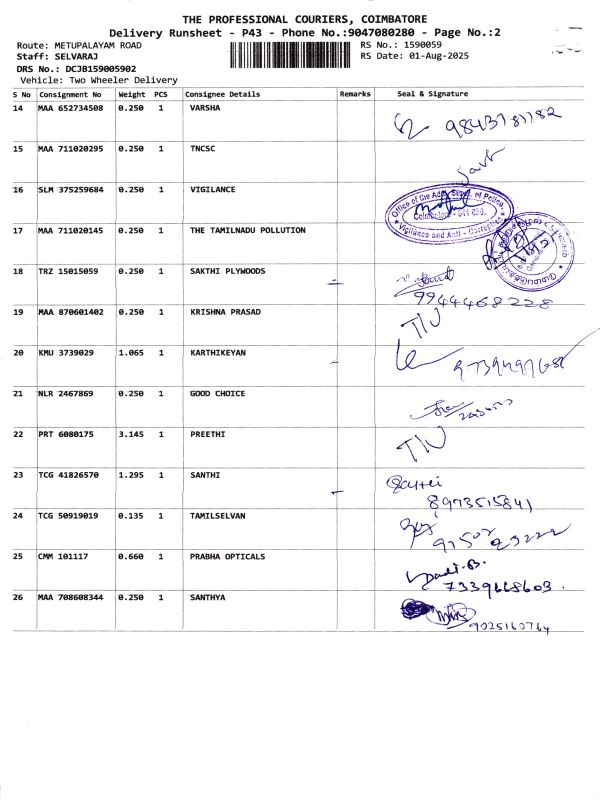 THE PROFESSIONAL COURIERS, COIMBATORE
Delivery Runsheet - P43 - Phone No.:9047080280 - Page No.:2
Route: METUPALAYAM ROAD RS No.: 1590059
Staff: SELVARAJ RS Date: 01-Aug-2025
DRS No.: DCJB159005902
Vehicle: Two Wheeler Delivery
S No Consignment No Weight PCS Consignee Details Remarks Seal & Signature
14 MAA 652734508 0.250 1 VARSHA
15 MAA 711020295 0.250 1 TNCSC
16 SLM 375259684 0.250 1 VIGILANCE
Office of the Addl. Supdt. of Police,
Vigilance and Anti - Corruption
17 MAA 711020145 0.250 1 THE TAMILNADU POLLUTION
18 TRZ 15015059 0.250 1 SAKTHI PLYWOODS
9944468228
19 MAA 870601402 0.250 1 KRISHNA PRASAD
20 KMU 3739029 1.065 1 KARTHIKEYAN
21 NLR 2467869 0.250 1 GOOD CHOICE
22 PRT 6080175 3.145 1 PREETHI
23 TCG 41826570 1.295 1 SANTHI
8973515841
24 TCG 50919019 0.135 1 TAMILSELVAN
25 CMM 101117 0.660 1 PRABHA OPTICALS
7339668603.
26 MAA 708608344 0.250 1 SANTHYA
9025160764